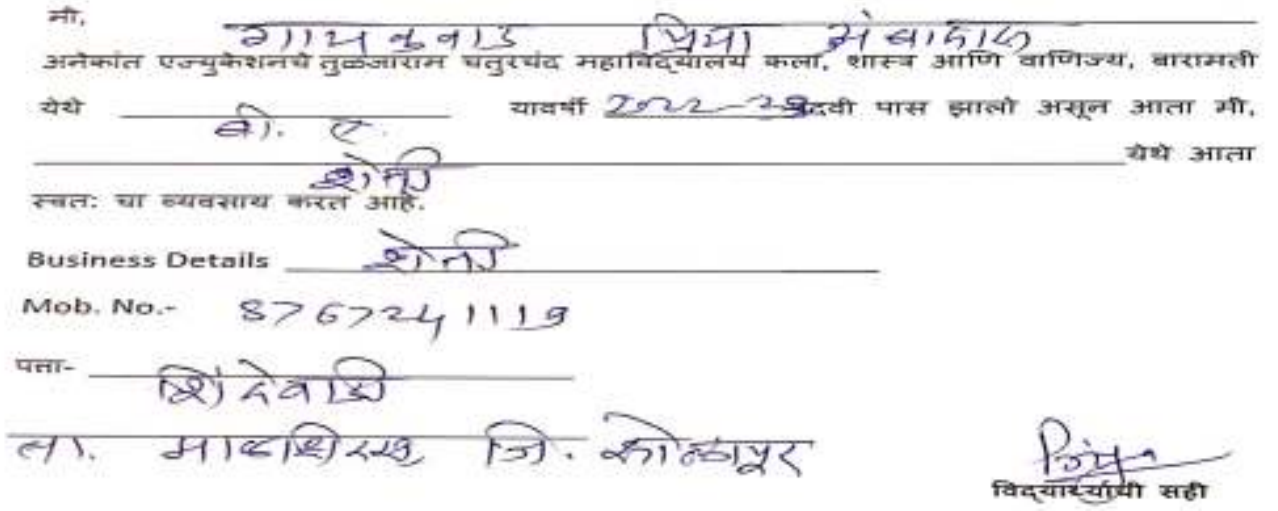 मी,
गायकवाड प्रिया संवादाक
अनेकांत एज्युकेशनचे तुळजाराम चतुरचंद महाविद्यालय कला, शास्त्र आणि वाणिज्य, बारामती
येथे बी. ए. यावर्षी 2022-23 पदवी पास झालो असून आता मी,
शेती येथे आता
स्वतः चा व्यवसाय करत आहे.
Business Details शेती
Mob. No.- 8767241119
पत्ता- शिंदेवाडी
ता. माळशिरस, जि. सोलापूर
Priya
विद्यार्थ्याची सही